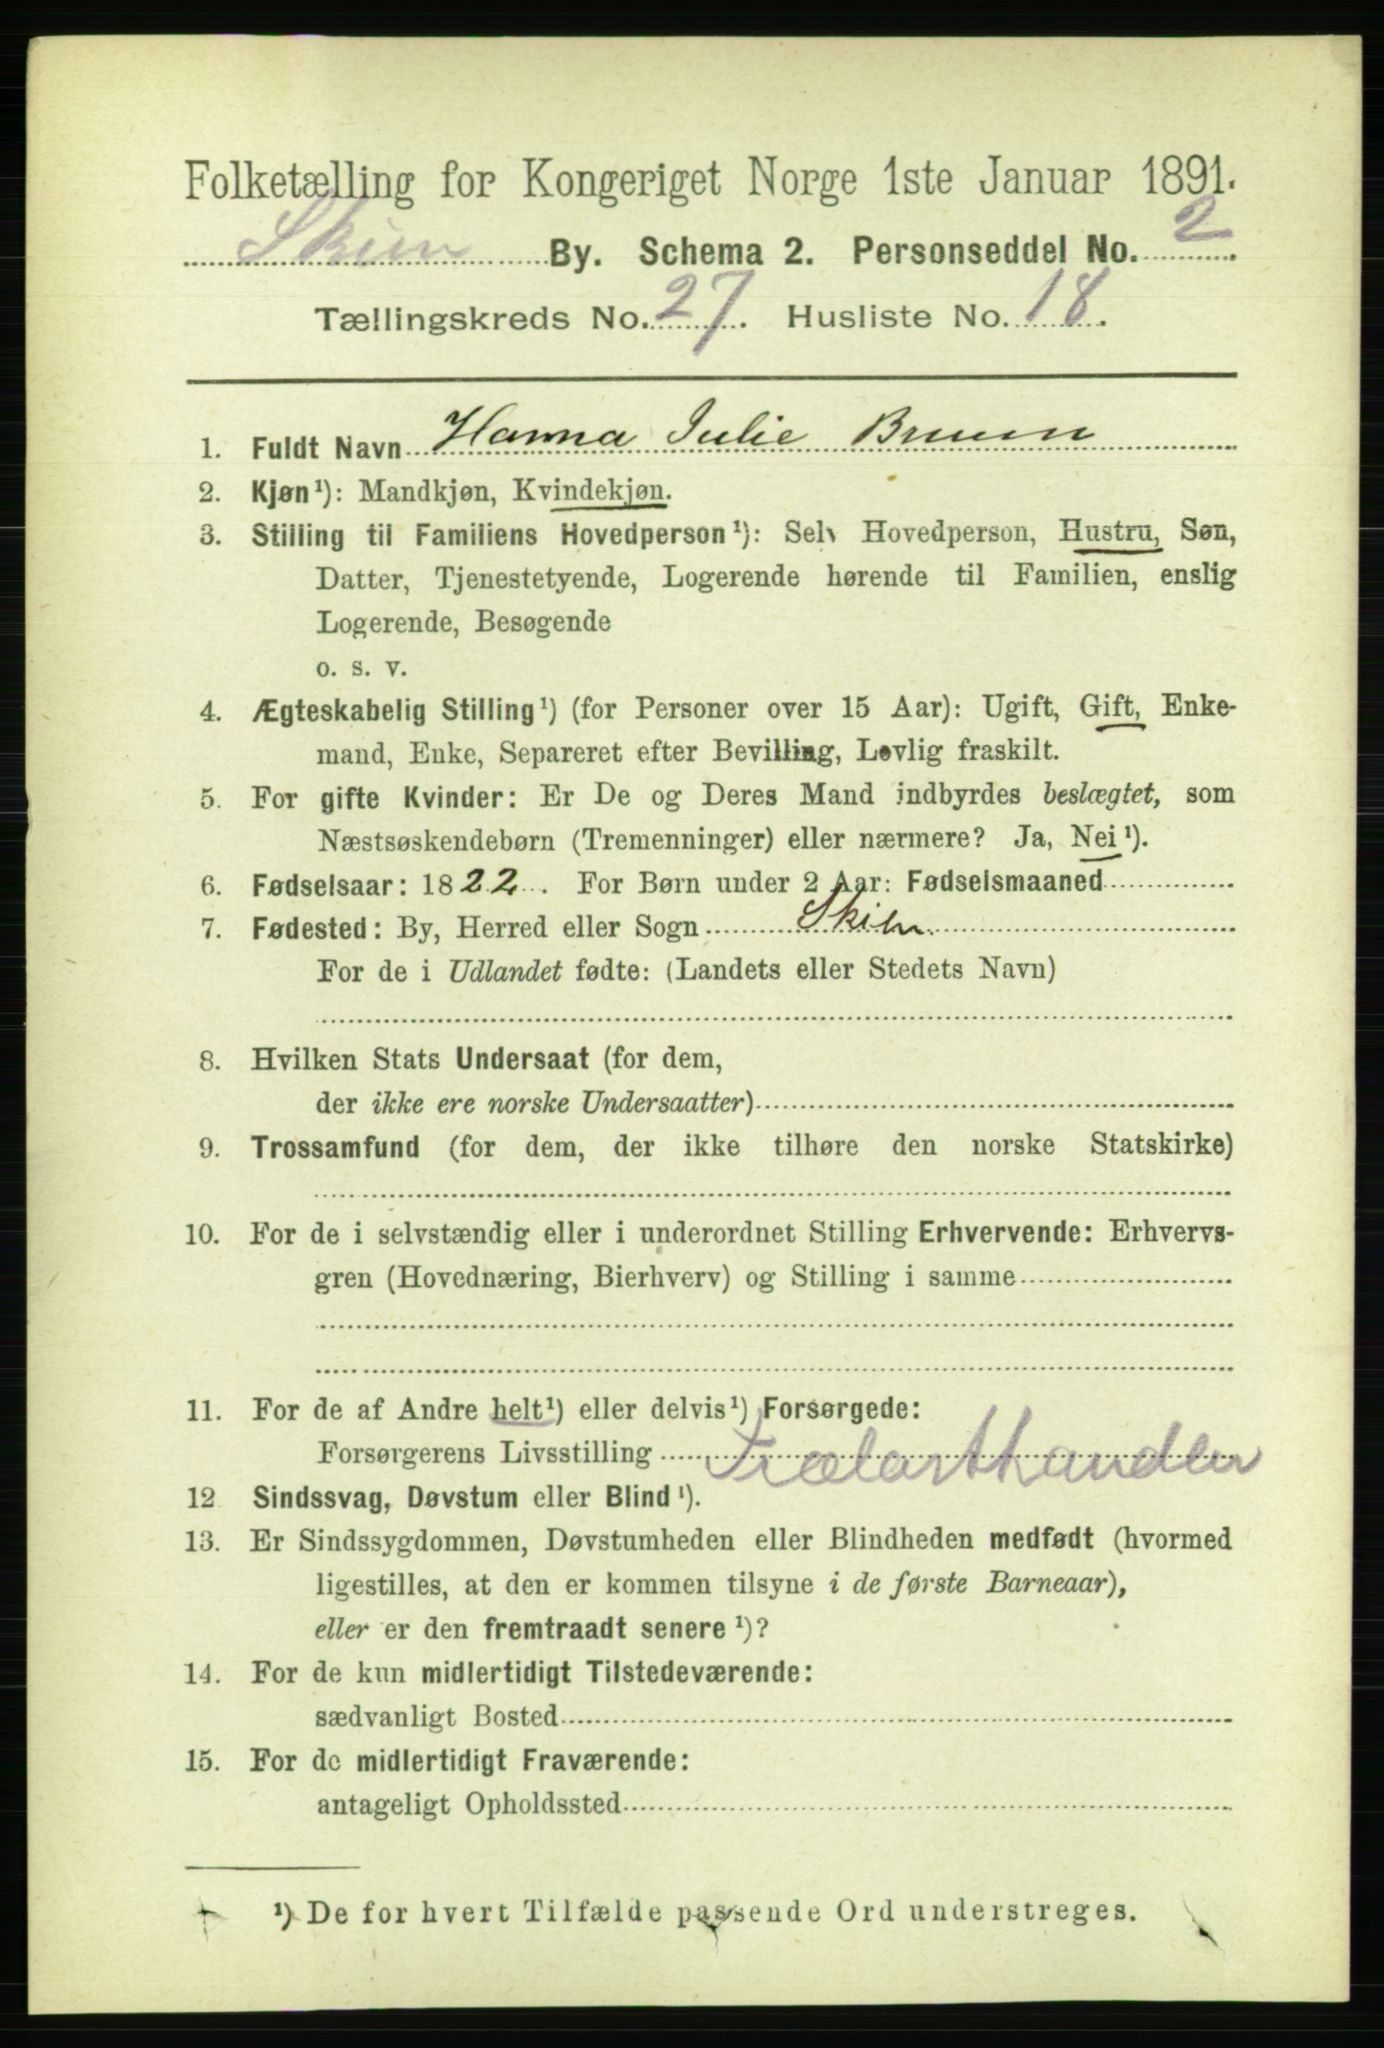 Folketælling for Kongeriget Norge 1ste Januar 1891.
Skien By. Schema 2. Personseddel No. 2
Tællingskreds No. 27. Husliste No. 18.
1. Fuldt Navn Hanna Julie Bruun
2. Kjøn¹): Mandkjøn, Kvindekjøn.
3. Stilling til Familiens Hovedperson¹): Selv Hovedperson, Hustru, Søn,
Datter, Tjenestetyende, Logerende hørende til Familien, enslig
Logerende, Besøgende
o. s. v.
4. Ægteskabelig Stilling¹) (for Personer over 15 Aar): Ugift, Gift, Enke-
mand, Enke, Separeret efter Bevilling, Lovlig fraskilt.
5. For gifte Kvinder: Er De og Deres Mand indbyrdes beslægtet, som
Næstsøskendebørn (Tremenninger) eller nærmere? Ja, Nei¹).
6. Fødselsaar: 1822. For Børn under 2 Aar: Fødselsmaaned
7. Fødested: By, Herred eller Sogn Skien
For de i Udlandet fødte: (Landets eller Stedets Navn)
8. Hvilken Stats Undersaat (for dem,
der ikke ere norske Undersaatter)
9. Trossamfund (for dem, der ikke tilhøre den norske Statskirke)
10. For de i selvstændig eller i underordnet Stilling Erhvervende: Erhvervs-
gren (Hovednæring, Bierhverv) og Stilling i samme
11. For de af Andre helt¹) eller delvis¹) Forsørgede:
Forsørgerens Livsstilling Trælasthandler
12. Sindssvag, Døvstum eller Blind¹).
13. Er Sindssygdommen, Døvstumheden eller Blindheden medfødt (hvormed
ligestilles, at den er kommen tilsyne i de første Barneaar),
eller er den fremtraadt senere¹)?
14. For de kun midlertidigt Tilstedeværende:
sædvanligt Bosted
15. For de midlertidigt Fraværende:
antageligt Opholdssted
¹) De for hvert Tilfælde passende Ord understreges.